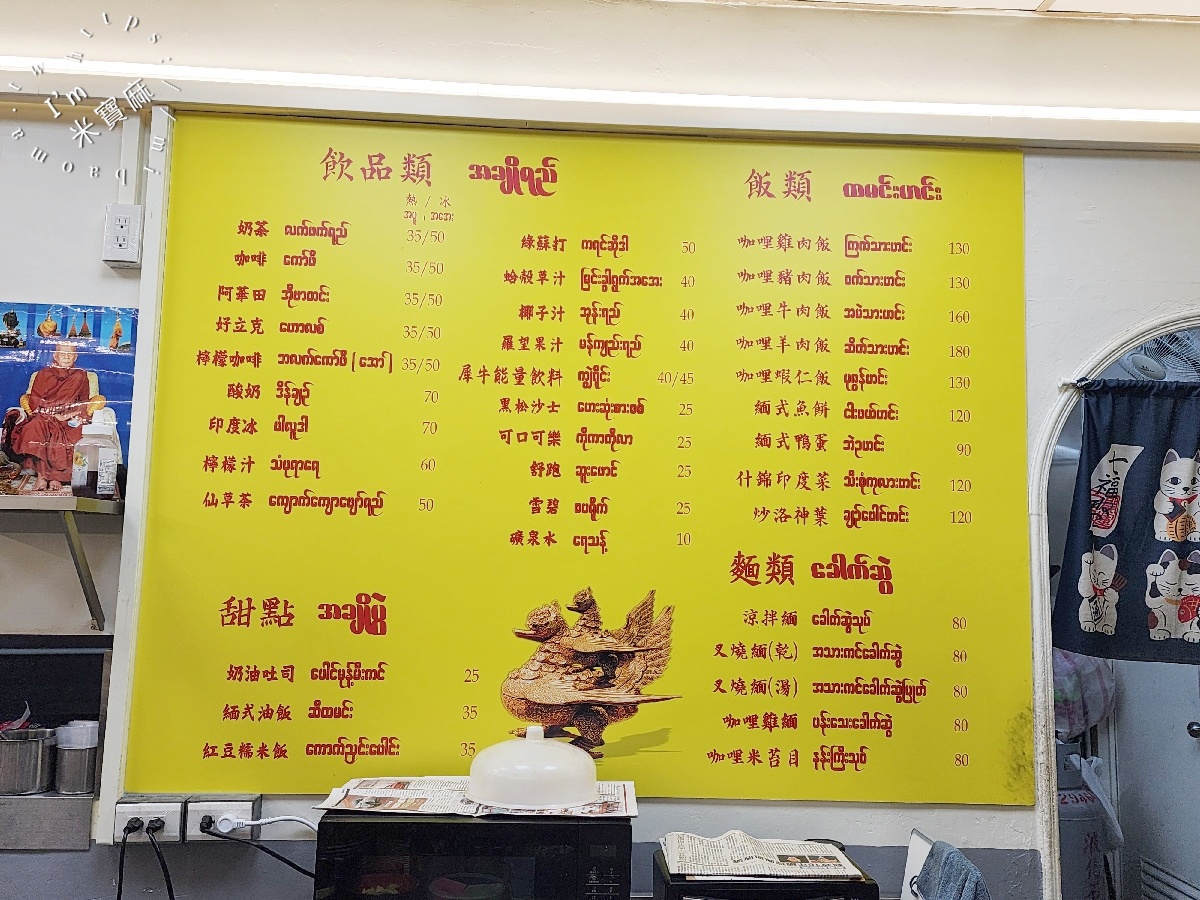 I'm
米寶麻
飲品類 အချိုရည်
熱 / 冰
အပူ , အအေး
奶茶 လက်ဖက်ရည် 35/50
咖啡 ကော်ဖီ 35/50
阿華田 အိုဗာတင်း 35/50
好立克 ဟောလစ် 35/50
檸檬咖啡 ဘလက်ကော်ဖီ (အော်) 35/50
酸奶 ဒိန်ချဉ် 70
印度冰 ဖါလူဒါ 70
檸檬汁 သံပုရာရေ 60
仙草茶 ကျောက်ကျောဖျော်ရည် 50
綠蘇打 ကရင်ဆိုဒါ 50
蛤殼草汁 မြင်းခွါရွက်အအေး 40
椰子汁 အုန်းရည် 40
羅望果汁 မန်ကျည်းရည် 40
犀牛能量飲料 ကျွဲရိုင်း 40/45
黑松沙士 ဟေးဆုံးစားစစ် 25
可口可樂 ကိုကာကိုလာ 25
舒跑 ဆူးဖောင် 25
雪碧 စပရိုက် 25
礦泉水 ရေသန့် 10
甜點 အချိုပွဲ
奶油吐司 ပေါင်မုန့်မီးကင် 25
緬式油飯 ဆီထမင်း 35
紅豆糯米飯 ကောက်ညှင်းပေါင်း 35
飯類 ထမင်းဟင်း
咖哩雞肉飯 ကြက်သားဟင်း 130
咖哩豬肉飯 ဝက်သားဟင်း 130
咖哩牛肉飯 အမဲသားဟင်း 160
咖哩羊肉飯 ဆိတ်သားဟင်း 180
咖哩蝦仁飯 ပုစွန်ဟင်း 130
緬式魚餅 ငါးဖယ်ဟင်း 120
緬式鴨蛋 ဘဲဥဟင်း 90
什錦印度菜 သီးစုံကုလားဟင်း 120
炒洛神葉 ချဉ်ပေါင်ဟင်း 120
麵類 ခေါက်ဆွဲ
涼拌麵 ခေါက်ဆွဲသုပ် 80
叉燒麵(乾) အသားကင်ခေါက်ဆွဲ 80
叉燒麵(湯) အသားကင်ခေါက်ဆွဲပြုတ် 80
咖哩雞麵 ပန်းသေးခေါက်ဆွဲ 80
咖哩米苔目 နန်းကြီးသုပ် 80
七福